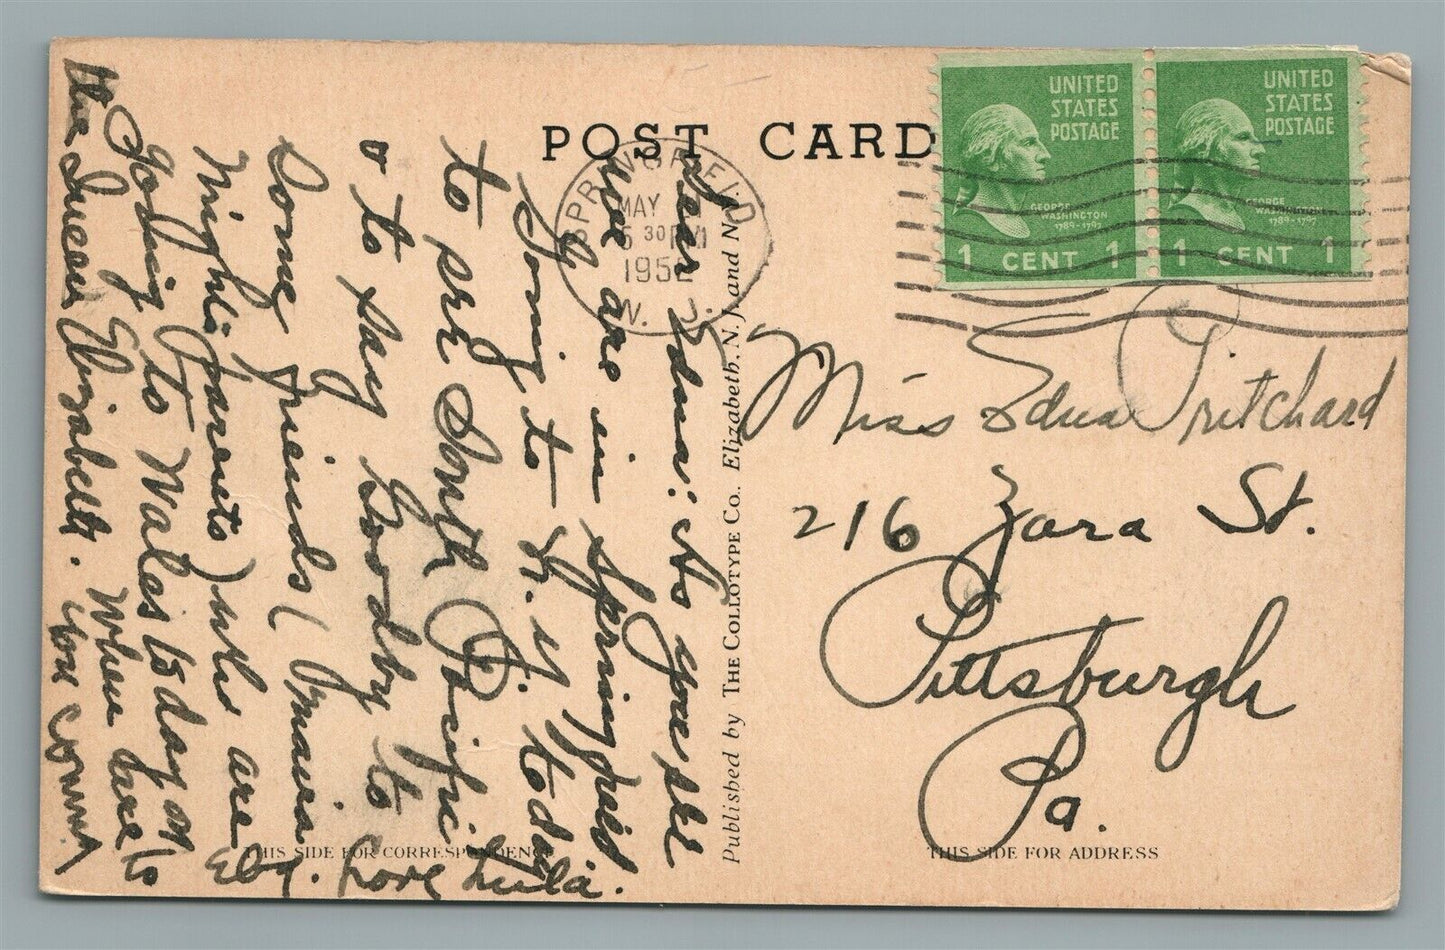 POST CARD
UNITED STATES POSTAGE
GEORGE WASHINGTON
1789-1797
1 CENT 1
UNITED STATES POSTAGE
GEORGE WASHINGTON
1789-1797
1 CENT 1
SPRINGFIELD
MAY
5 30 PM
1952
N. J.
Dear Edna: As you see
we are in Springfield
Going to N.Y. today
to see South Pacific
& to say Goodby to
Some friends (
parents) who are
Going to Wales today on
the Queen Elizabeth. When are
you coming to
Love Lula.
Published by THE COLLOTYPE CO., Elizabeth, N. J. and N. Y.
Miss Edna Pritchard
216 Zara St.
Pittsburgh
Pa.
THIS SIDE FOR CORRESPONDENCE
THIS SIDE FOR ADDRESS